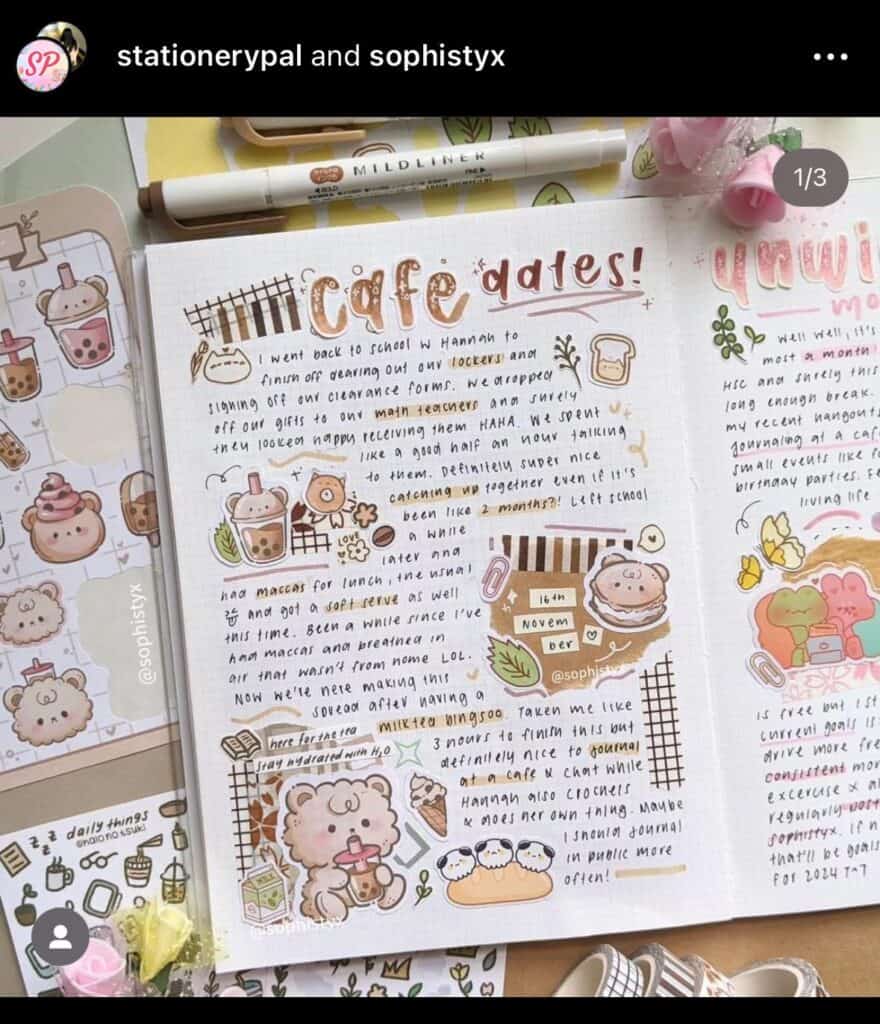 stationerypal and sophistyx
SP
1/3
MILDLINER
cafe dates!
I went back to school w Hannah to
finish off clearing out our lockers and
signing off our clearance forms. We dropped
off our gifts to our math teachers and surely
they looked happy receiving them HAHA. We spent
like a good half an hour talking
to them. Definitely super nice
catching up together even if it's
been like 2 months?! Left school
a while
later and
had maccas for lunch, the usual
and got a soft serve as well
this time. Been a while since I've
had maccas and breathed in
air that wasn't from home LOL.
Now we're here making this
spread after having a
milktea bingsoo. Taken me like
3 hours to finish this but
definitely nice to journal
at a cafe & chat while
Hannah also crochets
& does her own thing. Maybe
I should journal
in public more
often!
LOVE
16th
Novem
ber
@sophistyx
here for the tea
stay hydrated with H2O
MILK
@sophistyx
@sophistyx
zzz
zz
daily things
unwi
mo
Well well, it's
most a month
HSC and surely this
long enough break.
my recent hangouts
journaling at a caf
small events like f
birthday parties. Fe
living life
is free but 1st
current goals is
drive more fre
consistent mor
excercise & a
regularly post
sophistyx. If n
that'll be goals
for 2024 TnT